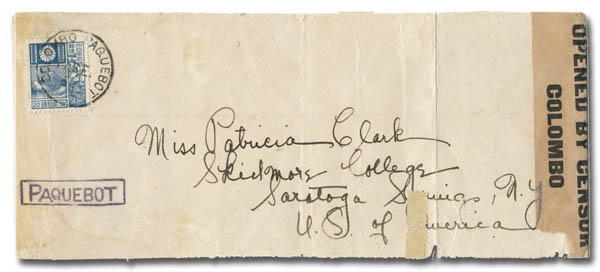 COLOMBO PAQUEBOT
Miss Patricia Clark
Skidmore College
Saratoga Springs, N.Y
U.S. of America
PAQUEBOT
OPENED BY CENSOR
COLOMBO